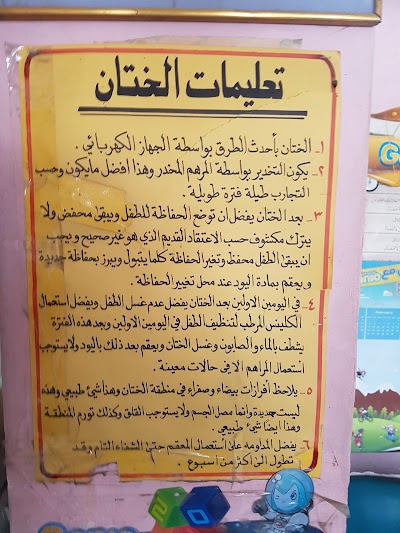 تعليمات الختان
١- الختان بأحدث الطرق بواسطة الجهاز الكهربائي.
٢- يكون التخدير بواسطة المرهم المخدر وهذا افضل مايكون وحسب
التجارب طيلة فترة طويلة.
٣- بعد الختان يفضل ان توضع الحفاظة للطفل ويبقى محفض ولا
يترك مكشوف حسب الاعتقاد القديم الذي هو غير صحيح ويجب
ان يبقى الطفل محفظ وتغير الحفاظة كلما يتبول ويبرز بحفاظة جديدة
ويعقم بمادة اليود عند محل تغير الحفاظة.
٤- في اليومين الاولين بعد الختان يفضل عدم غسل الطفل ويفضل استعمال
الكلينس المرطب لتنظيف الطفل في اليومين الاولين وبعد هذه الفترة
يشطف بالماء والصابون وغسل الختان ويعقم بعد ذلك باليود ولا يستوجب
استعمال المراهم الا في حالات معينة.
٥- يلاحظ أفرازات بيضاء وصفراء في منطقة الختان وهذا شئ طبيعي وهذه
ليست جديدة وانما مصل الجسم ولا يستوجب القلق وكذلك تورم المنطقة
وهذا ايضا شئ طبيعي.
٦- يفضل المداومه على استعمال المعقم حتى الشفاء التام وقد
تطول الى اكثر من اسبوع.
G